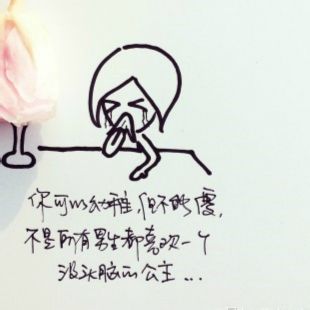 你可以幼稚，但不能傻，
不是所有男生都喜欢一个
没头脑的公主...